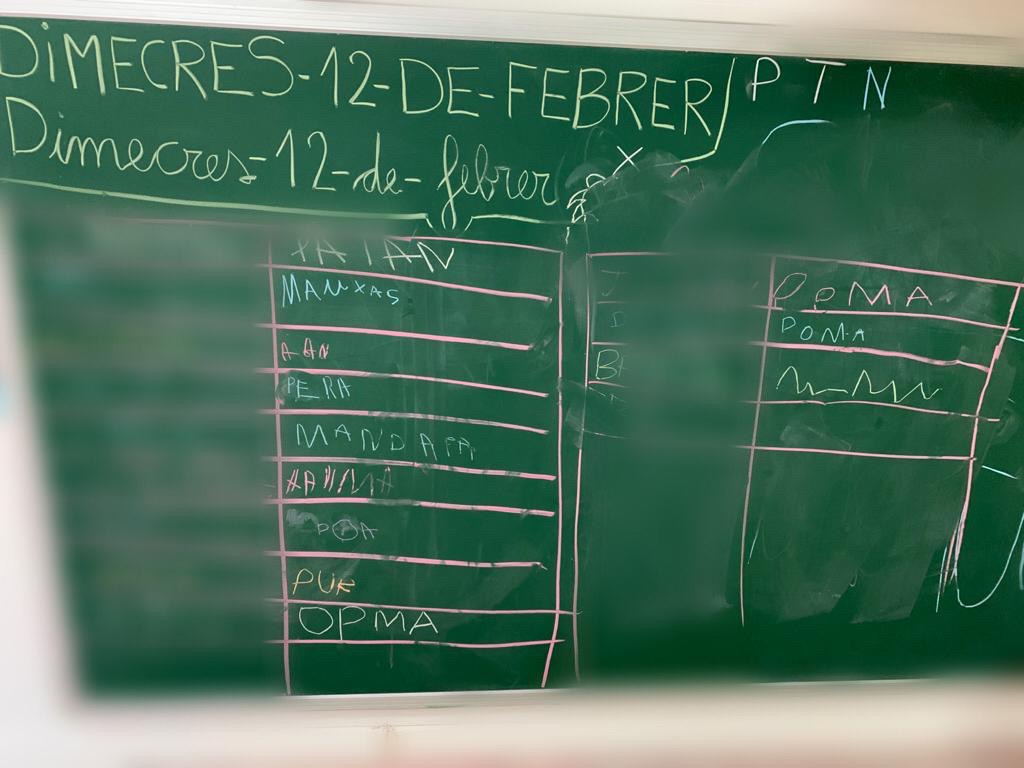 DiMECRES-12-DE-FEBRER
P T N
Dimecres-12-de-febrer
MANXAS
PERA
MANDAPA
POA
PUR
OPMA
POMA
POMA